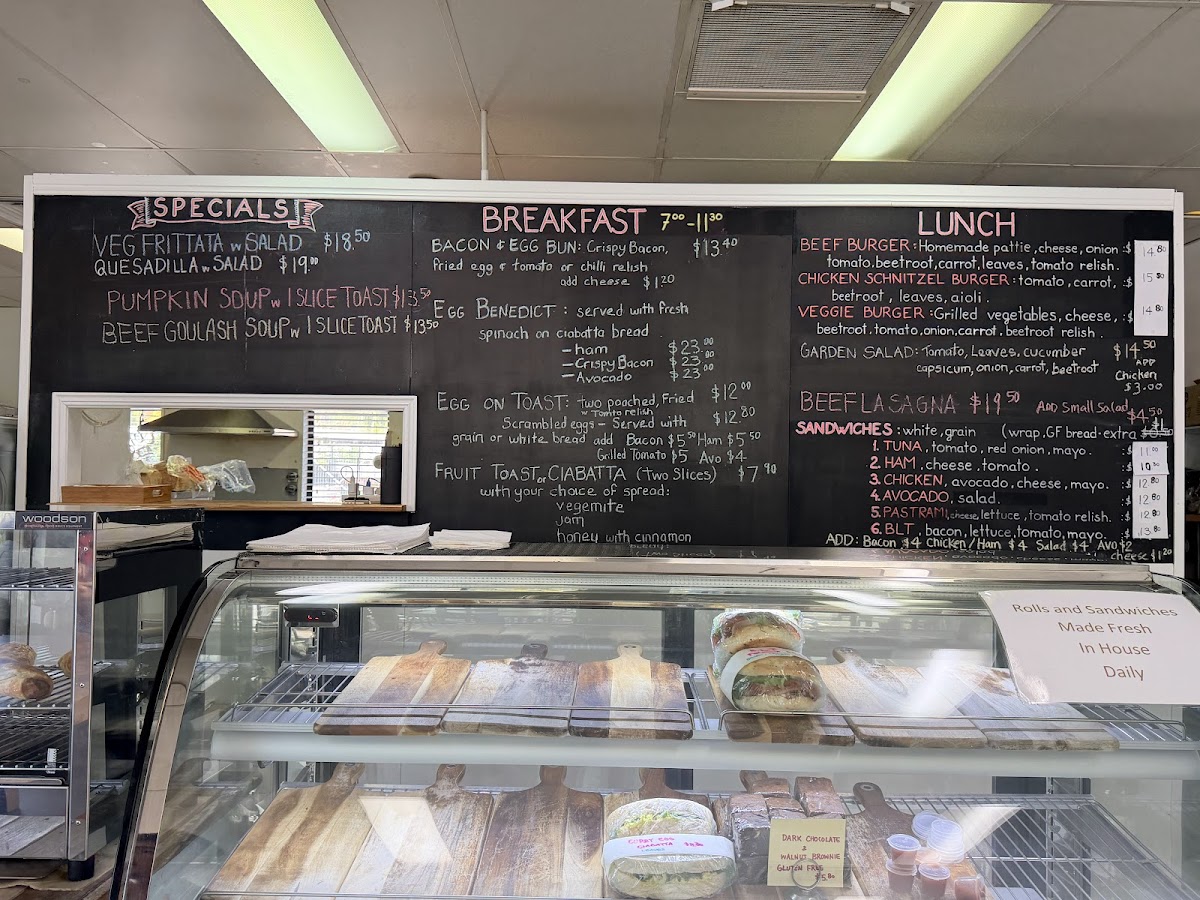 SPECIALS
VEG FRITTATA w SALAD $18.50
QUESADILLA w SALAD $19.00
PUMPKIN SOUP w 1 SLICE TOAST $13.50
BEEF GOULASH SOUP w 1 SLICE TOAST $13.50
BREAKFAST 7.00-11.30
BACON & EGG BUN: Crispy Bacon, $13.40
fried egg & tomato or chilli relish
add cheese $1.20
EGG BENEDICT: served with fresh
spinach on ciabatta bread
- ham $23.00
- Crispy Bacon $23.00
- Avocado $23.00
EGG ON TOAST: two poached, Fried $12.00
w Tomato relish
Scrambled eggs - Served with $12.80
grain or white bread add Bacon $5.50 Ham $5.50
Grilled Tomato $5 Avo $4
FRUIT TOAST or CIABATTA (Two Slices) $7.90
with your choice of spread:
vegemite
jam
honey with cinnamon
LUNCH
BEEF BURGER: Homemade pattie, cheese, onion :$ 14.80
tomato, beetroot, carrot, leaves, tomato relish.
CHICKEN SCHNITZEL BURGER: tomato, carrot, :$ 15.80
beetroot, leaves, aioli.
VEGGIE BURGER: Grilled vegetables, cheese, :$ 14.80
beetroot, tomato, onion, carrot, beetroot relish.
GARDEN SALAD: Tomato, Leaves, cucumber $14.50
capsicum, onion, carrot, beetroot
ADD
Chicken
$3.00
BEEF LASAGNA $19.50 ADD Small Salad $4.50
SANDWICHES: white, grain (wrap. GF bread - extra
1. TUNA, tomato, red onion, mayo. :$ 11.00
2. HAM, cheese, tomato. :$ 10.30
3. CHICKEN, avocado, cheese, mayo. :$ 12.80
4. AVOCADO, salad. :$ 12.80
5. PASTRAMI, cheese, lettuce, tomato relish. :$ 12.80
6. BLT, bacon, lettuce, tomato, mayo. :$ 13.80
ADD: Bacon $4 chicken/Ham $4 Salad $4 Avo $2
cheese $1.20
woodson
Rolls and Sandwiches
Made Fresh
In House
Daily
CURRY EGG
CIABATTA
DARK CHOCOLATE
&
WALNUT BROWNIE
GLUTEN FREE
$5.80